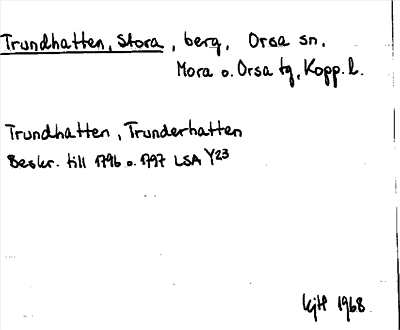 Trundhatten, Stora, berg, Orsa sn.
Mora o. Orsa tg, Kopp. l.
Trundhatten, Trunderhatten
Beskr. till 1796 o. 1797 LSA Y23
1968